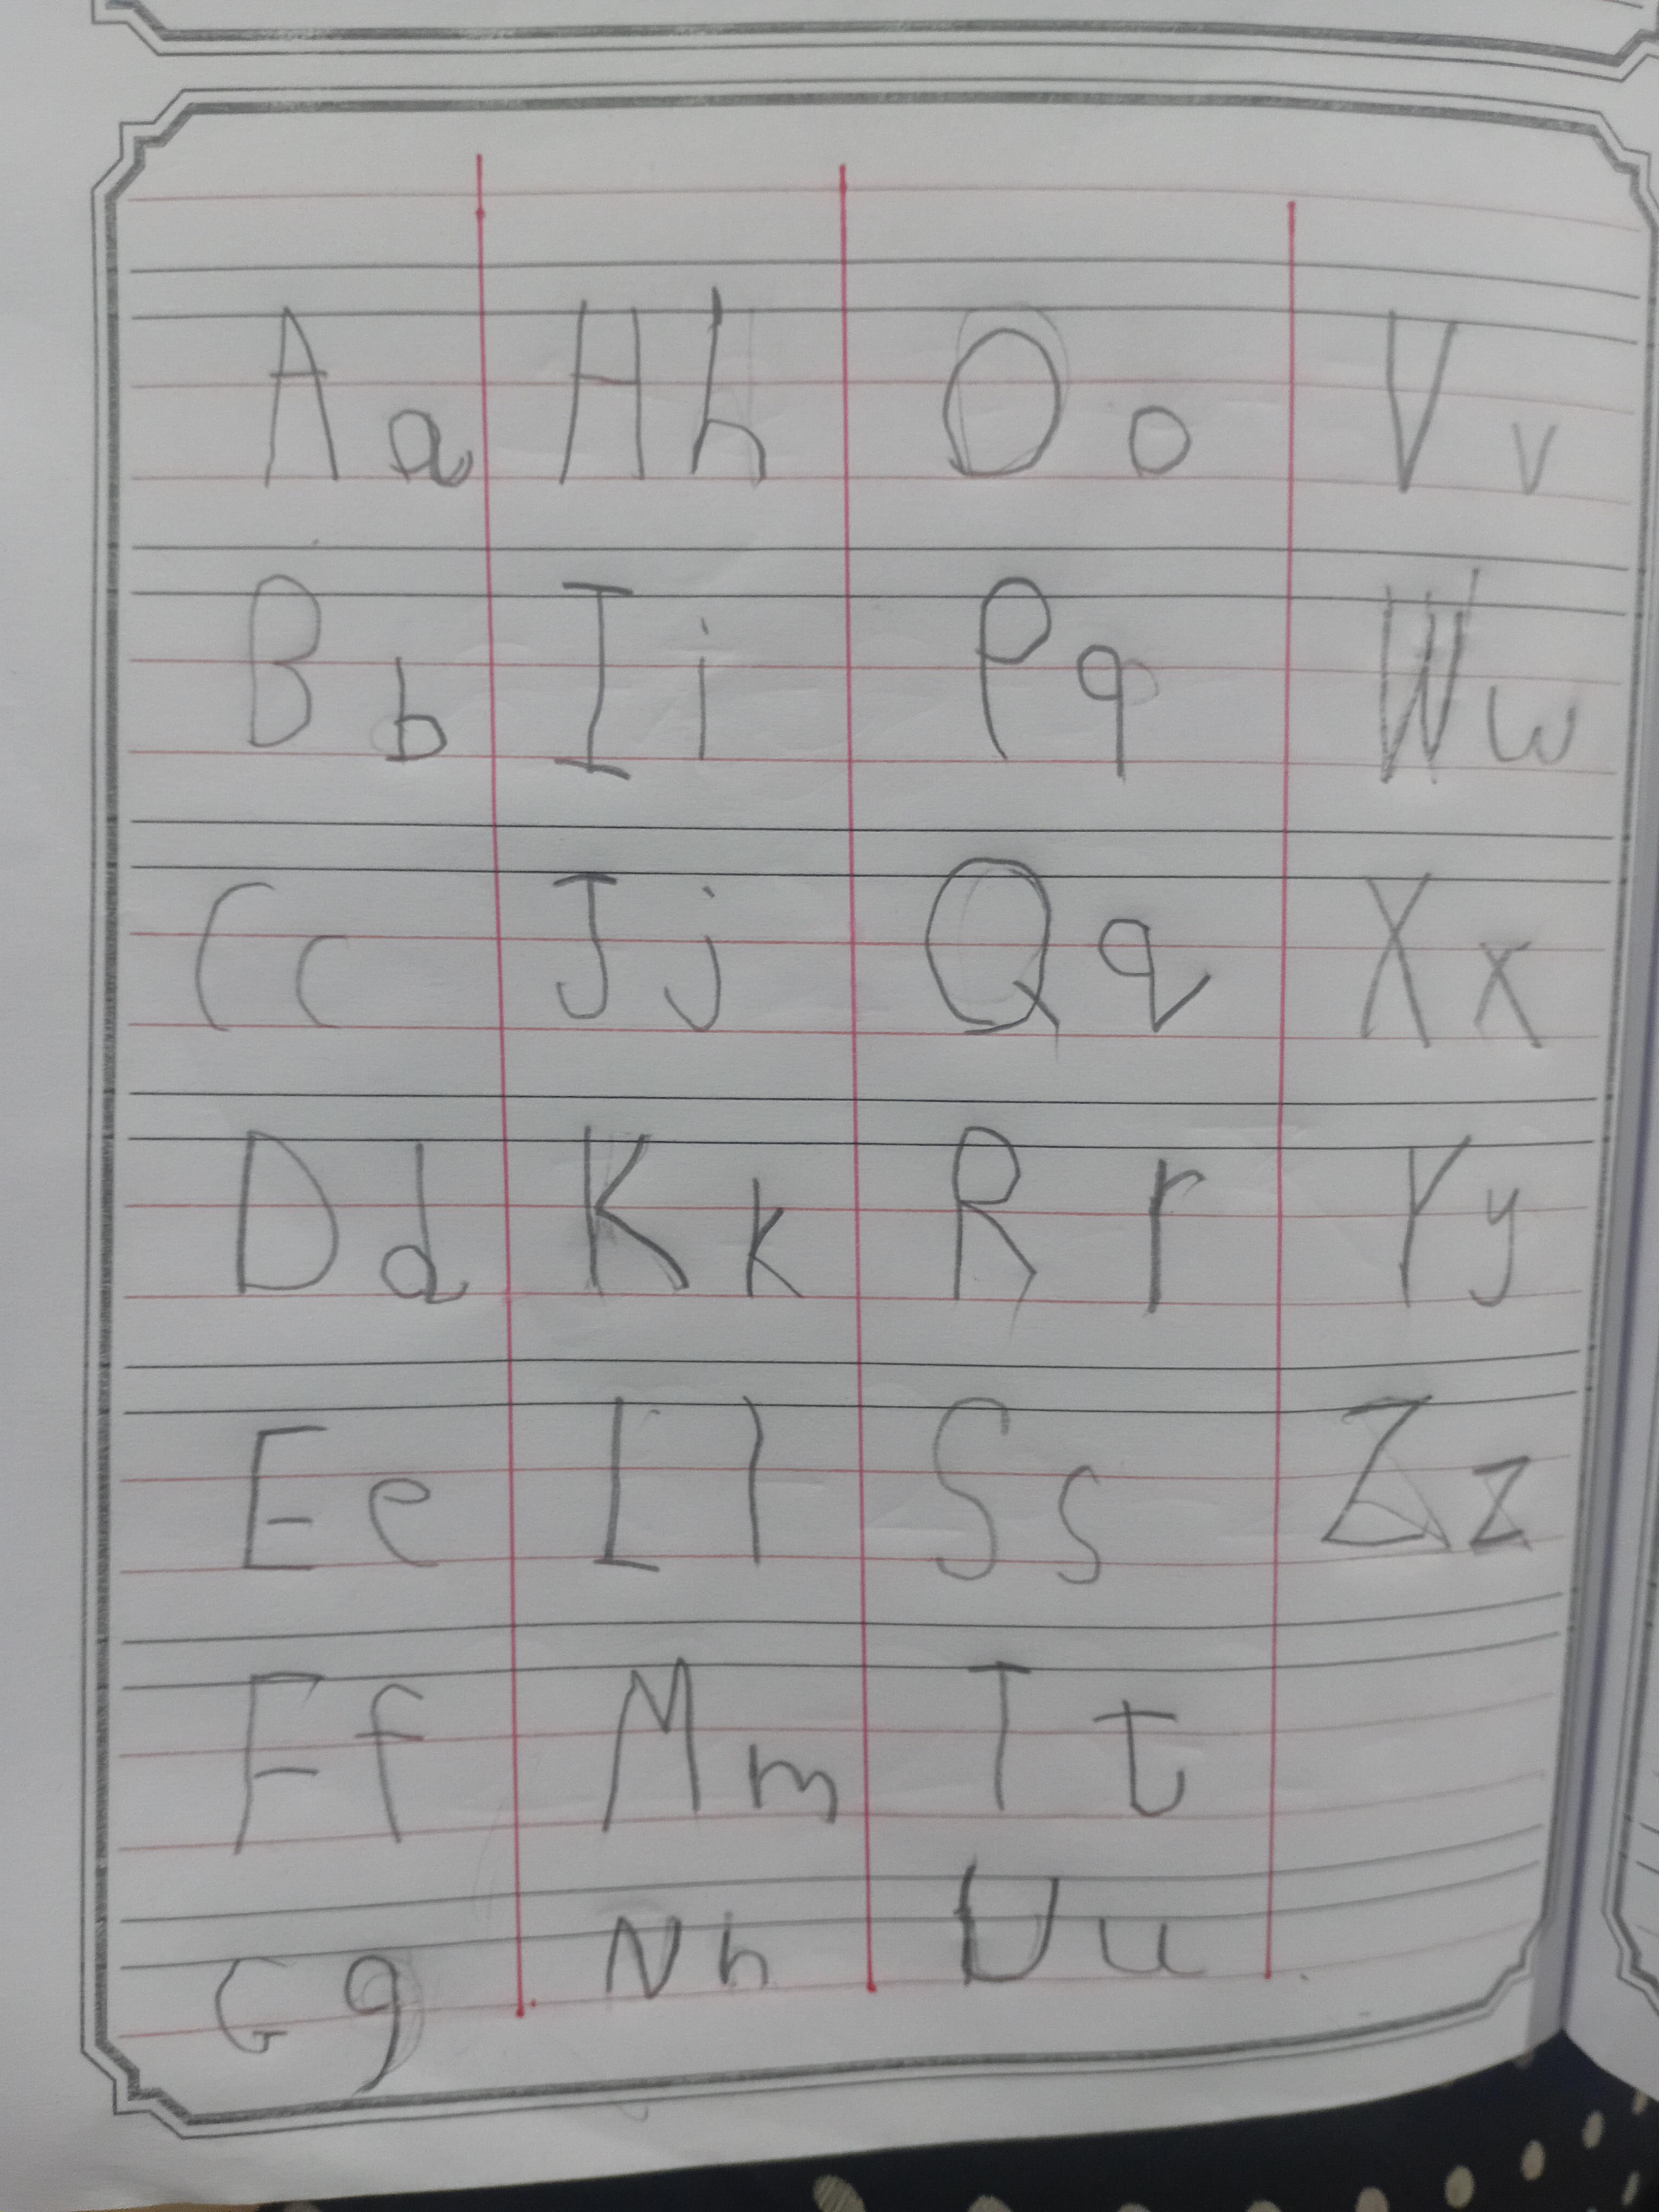 Aa Hh Oo Vv
Bb Ii Pq Ww
Cc Jj Qq Xx
Dd Kk Rr Yy
Ee Ll Ss Zz
Ff Mm Tt
Gg Nh Uu